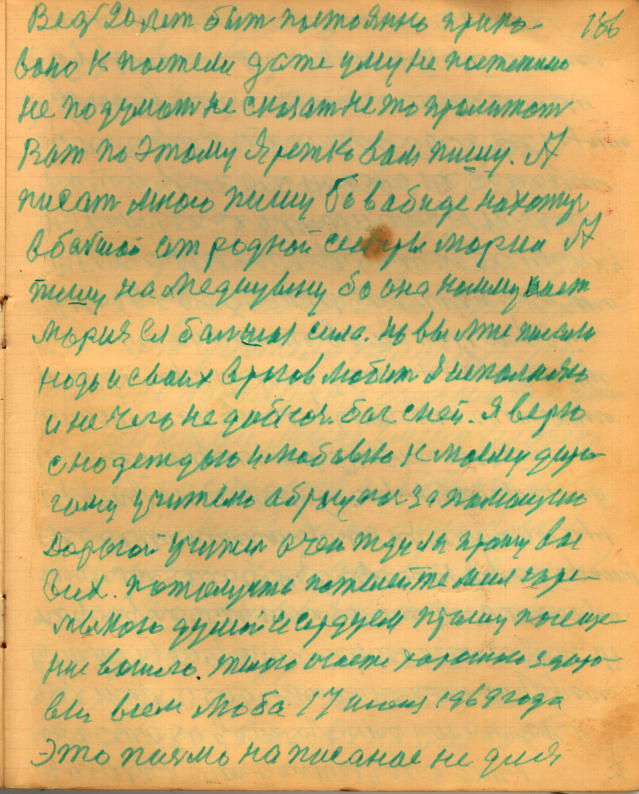 186
Вез 20 лет быт постоянно прико-
вано к постели даже уму не постежимо
не подумат не сказат не то пролижат
Вот по этому Я ретко вам пишу. А
писат много пишу бо в абиде нахожус
в балшой от родной сестры Марии А
пишу на Меднувену бо она
Мария Ея балшая сила. но вы мне писали
нады и своих врагов любит Я исполняю
и не чего не добюся. бог с ней. Я верю
с надеждою и любовю к моему доро-
гому учителю абращаюс за помощю
Дорогой учител очен жду и прошу вас
всех. пожалуста пожелейте меня
душой и сердцем прошу посеще-
ние вашего. много счаста харошаго здоро-
вя всем Люба 17 июня 1969 года
Это писмо написаное не для